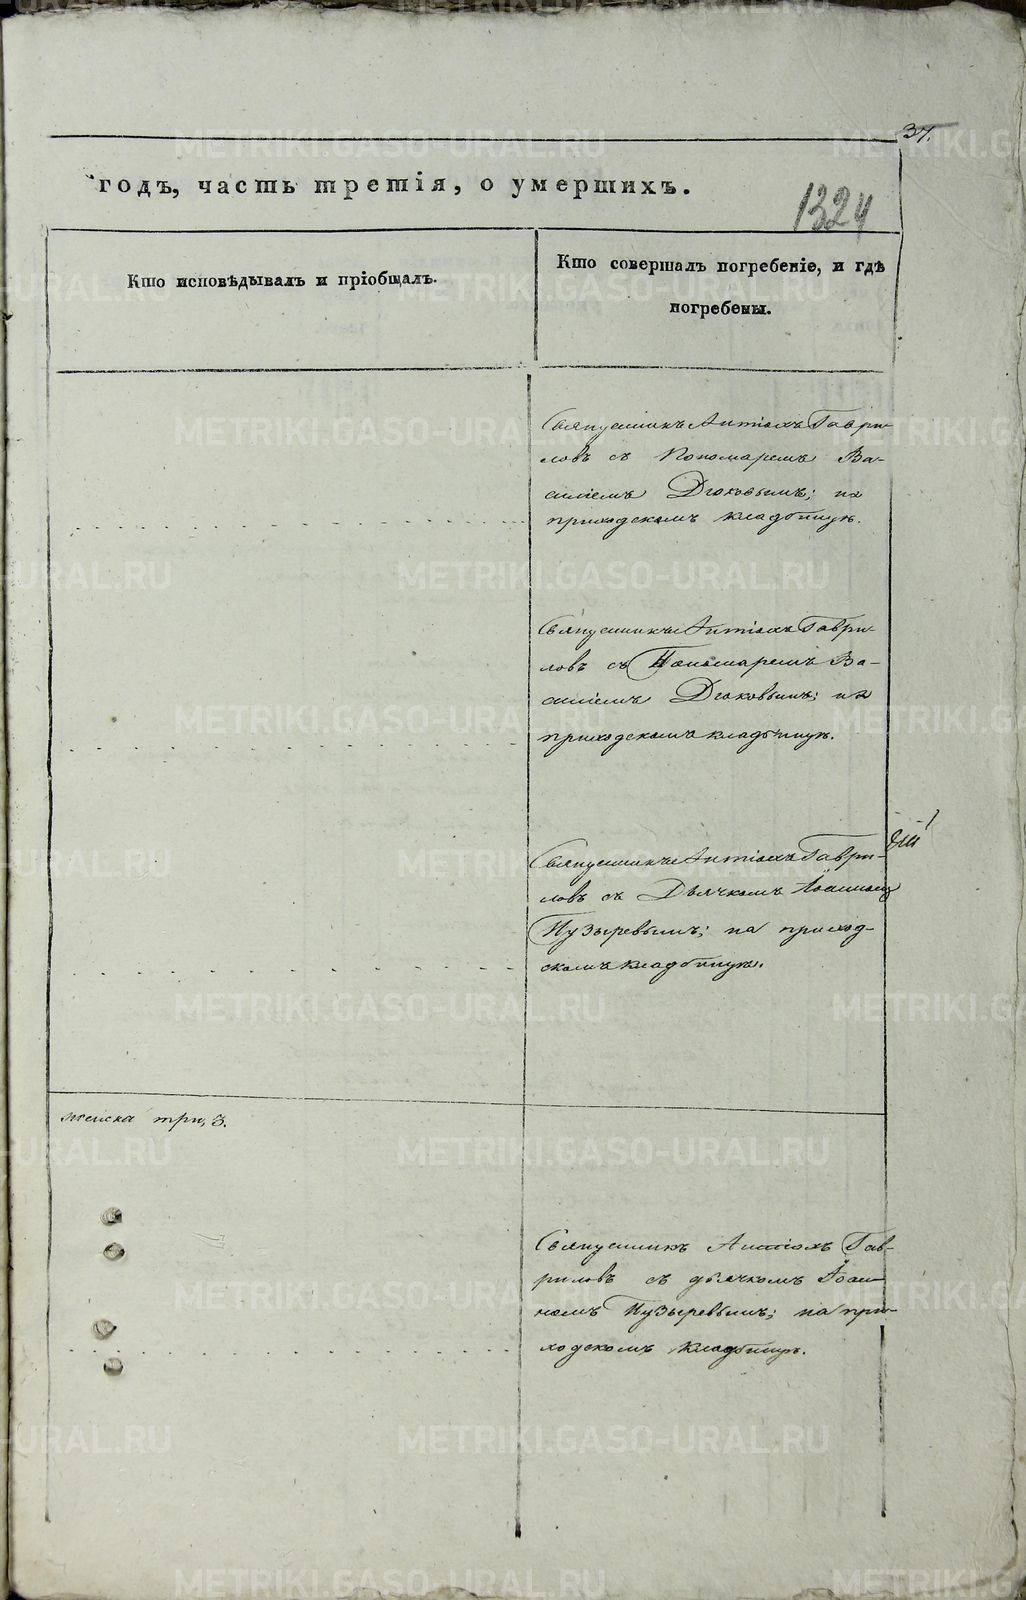 37.
годъ, часть третія, о умершихъ.
1324
Кто исповѣдывалъ и пріобщалъ.
Кто совершалъ погребеніе, и гдѣ
погребены.
Священникъ Антіохъ Гаври-
ловъ съ Пономаремъ Ва-
силіемъ Дюковымъ; на
приходскомъ кладбищѣ.
Священникъ Антіохъ Гаври-
ловъ съ Пономаремъ Ва-
силіемъ Дюковымъ; на
приходскомъ кладбищѣ.
Священникъ Антіохъ Гаври-
ловъ съ Дьячкомъ Іоанномъ
Пузыревымъ; на приход-
скомъ кладбищѣ.
женска три, 3.
Священникъ Антіохъ Гав-
риловъ съ дьячкомъ Іоан-
номъ Пузыревымъ; на при-
ходскомъ кладбищѣ.
METRIKI.GASO-URAL.RU